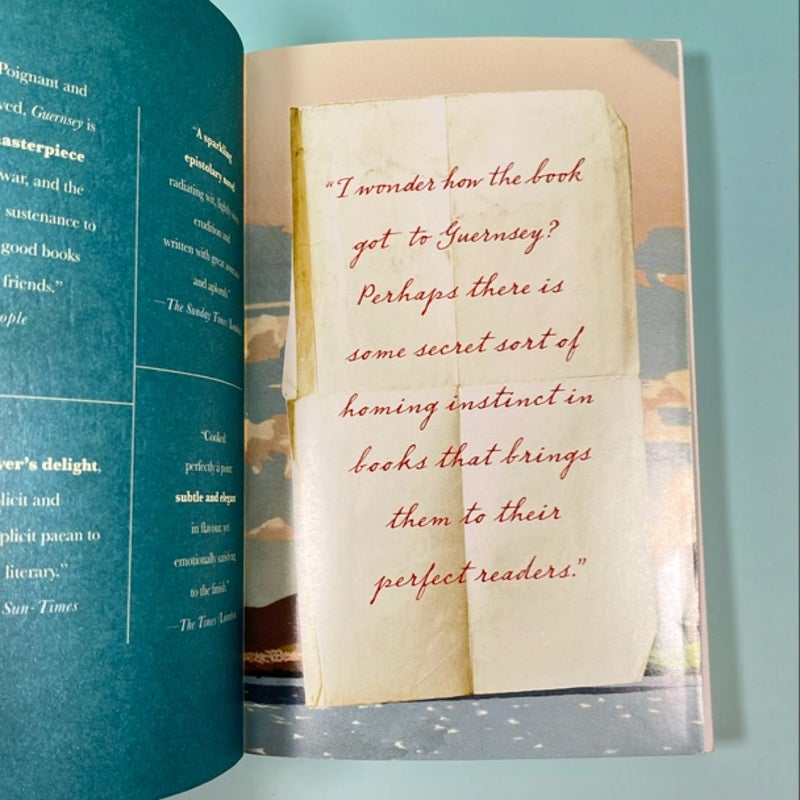 Poignant and
ved, Guernsey is
asterpiece
war, and the
sustenance to
good books
friends.”
ople
ver’s delight,
licit and
plicit paean to
literary.”
Sun-Times
“A sparkling
epistolary novel
radiating wit, lightly
erudition and
written with great
and aplomb.”
—The Sunday Times (London)
“Cooked
perfectly à point:
subtle and elegant
in flavour, yet
emotionally satisfying
to the finish.”
—The Times (London)
“I wonder how the book
got to Guernsey?
Perhaps there is
some secret sort of
homing instinct in
books that brings
them to their
perfect readers.”